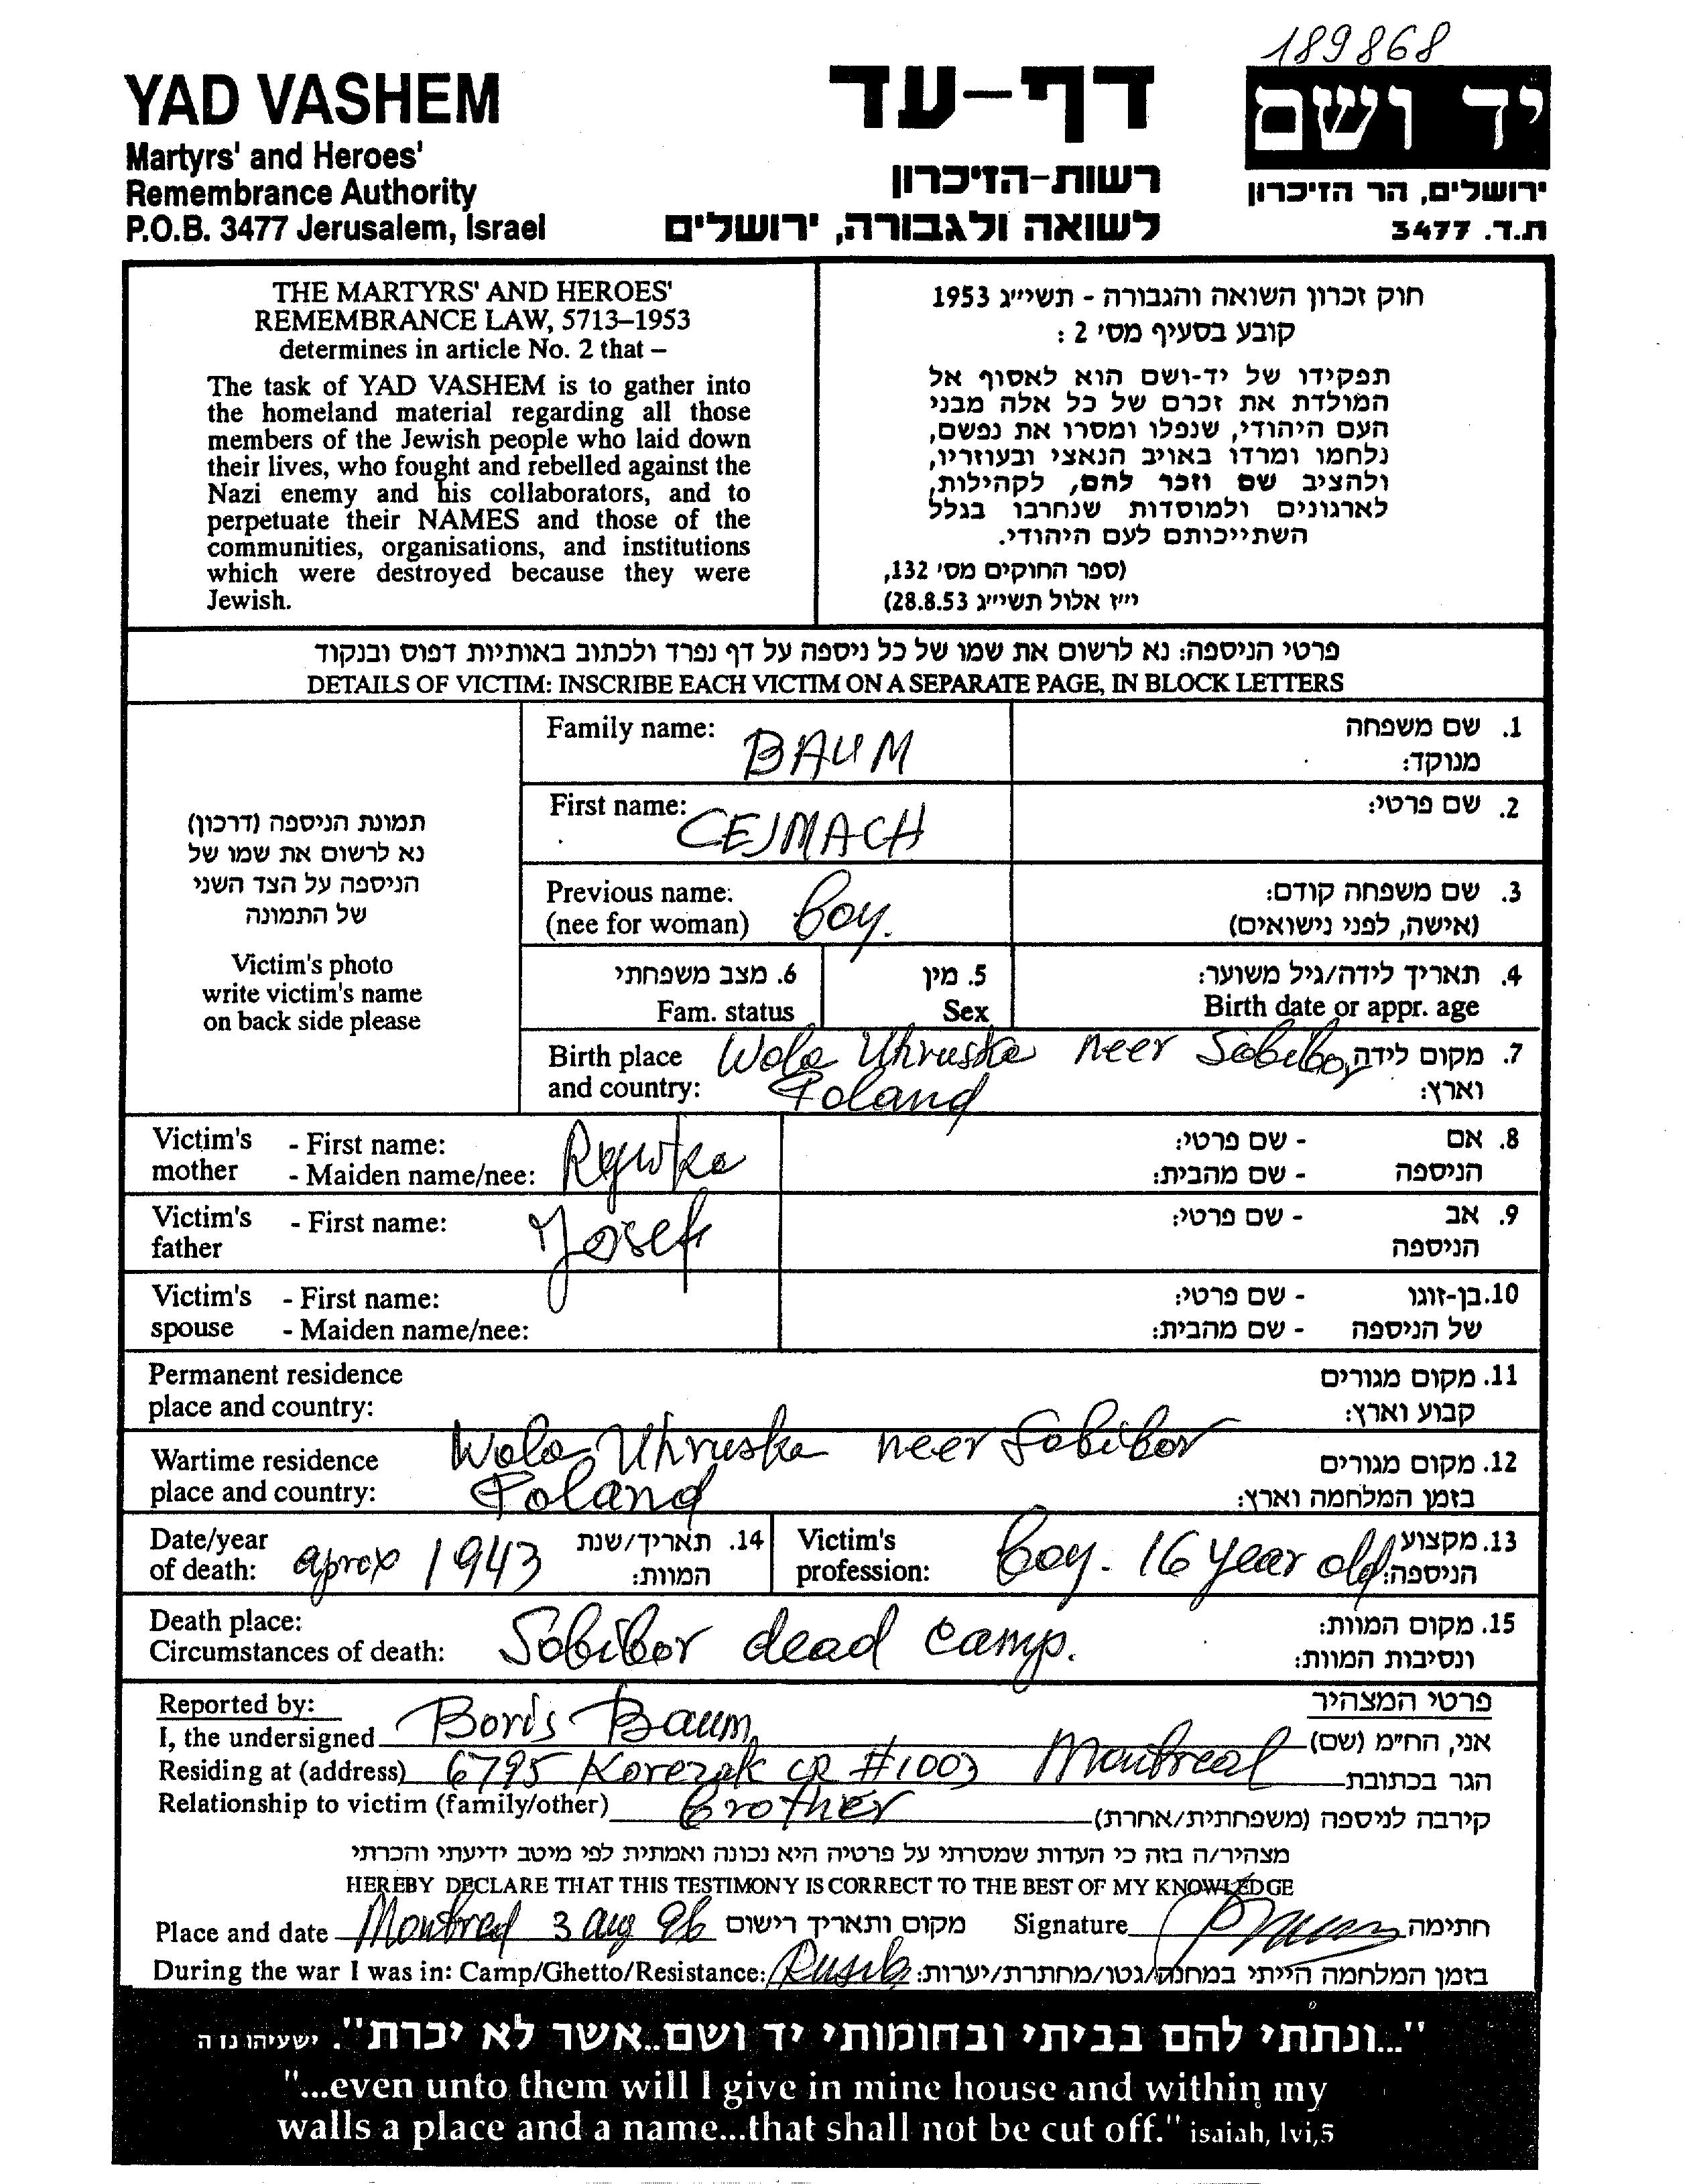 189868
YAD VASHEM
Martyrs' and Heroes'
Remembrance Authority
P.O.B. 3477 Jerusalem, Israel
דף-עד
רשות-הזיכרון
לשואה ולגבורה, ירושלים
יד ושם
ירושלים, הר הזיכרון
ת.ד. 3477
THE MARTYRS' AND HEROES'
REMEMBRANCE LAW, 5713–1953
determines in article No. 2 that –
The task of YAD VASHEM is to gather into
the homeland material regarding all those
members of the Jewish people who laid down
their lives, who fought and rebelled against the
Nazi enemy and his collaborators, and to
perpetuate their NAMES and those of the
communities, organisations, and institutions
which were destroyed because they were
Jewish.
חוק זכרון השואה והגבורה - תשי״ג 1953
קובע בסעיף מס׳ 2 :
תפקידו של יד-ושם הוא לאסוף אל
המולדת את זכרם של כל אלה מבני
העם היהודי, שנפלו ומסרו את נפשם,
נלחמו ומרדו באויב הנאצי ובעוזריו,
ולהציב שם וזכר להם, לקהילות,
לארגונים ולמוסדות שנחרבו בגלל
השתייכותם לעם היהודי.
(ספר החוקים מס׳ 132,
י״ז אלול תשי״ג 28.8.53)
פרטי הניספה: נא לרשום את שמו של כל ניספה על דף נפרד ולכתוב באותיות דפוס ובנקוד
DETAILS OF VICTIM: INSCRIBE EACH VICTIM ON A SEPARATE PAGE, IN BLOCK LETTERS
תמונת הניספה (דרכון)
נא לרשום את שמו של
הניספה על הצד השני
של התמונה
Victim's photo
write victim's name
on back side please
Family name: BAUM 1. שם משפחה
מנוקד:
First name: CEJMACH 2. שם פרטי:
Previous name: 3. שם משפחה קודם:
(nee for woman) boy. (אישה, לפני נישואים)
6. מצב משפחתי 5. מין 4. תאריך לידה/גיל משוער:
Fam. status Sex Birth date or appr. age
Birth place Wola Uhruska neer Sobibor 7. מקום לידה
and country: Poland וארץ:
Victim's - First name: Rywka 8. אם - שם פרטי:
mother - Maiden name/nee: הניספה - שם מהבית:
Victim's - First name: Josef 9. אב - שם פרטי:
father הניספה
Victim's - First name: 10. בן-זוגו - שם פרטי:
spouse - Maiden name/nee: של הניספה - שם מהבית:
Permanent residence 11. מקום מגורים
place and country: קבוע וארץ:
Wartime residence Wola Uhruska neer Sobibor 12. מקום מגורים
place and country: Poland בזמן המלחמה וארץ:
Date/year 14. תאריך/שנת Victim's 13. מקצוע
of death: aprox 1943 המוות: profession: boy. 16 year old הניספה:
Death place: 15. מקום המוות:
Circumstances of death: Sobibor dead camp. ונסיבות המוות:
Reported by: פרטי המצהיר
I, the undersigned Boris Baum אני, הח״מ (שם)
Residing at (address) 6795 Korczak CR #1003 Montreal הגר בכתובת
Relationship to victim (family/other) brother קירבה לניספה (משפחתית/אחרת)
מצהיר/ה בזה כי העדות שמסרתי על פרטיה היא נכונה ואמתית לפי מיטב ידיעתי והכרתי
HEREBY DECLARE THAT THIS TESTIMONY IS CORRECT TO THE BEST OF MY KNOWLEDGE
Place and date Montreal 3 aug 96 מקום ותאריך רישום Signature חתימה
During the war I was in: Camp/Ghetto/Resistance: בזמן המלחמה הייתי במחנה/גטו/מחתרת/יערות:
"...ונתתי להם בביתי ובחומותי יד ושם..אשר לא יכרת". ישעיהו נו ה
"...even unto them will I give in mine house and within my
walls a place and a name...that shall not be cut off." isaiah, lvi,5